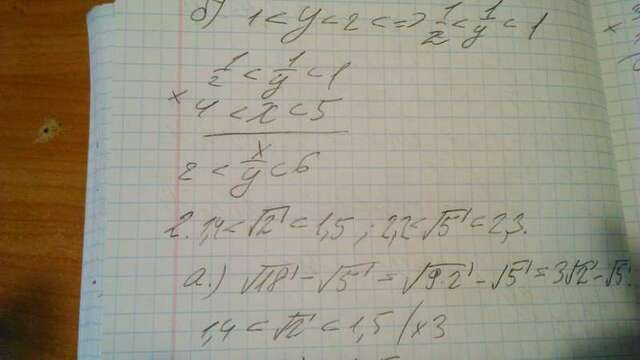 б) 1 < y < 2 <=> 1/2 < 1/y < 1
1/2 < 1/y < 1
× 4 < x < 5
2 < x/y < 6
2. 1,4 < √2 < 1,5 ; 2,2 < √5 < 2,3.
а.) √18 - √5 = √9·2 - √5 = 3√2 - √5.
1,4 < √2 < 1,5 / ×3